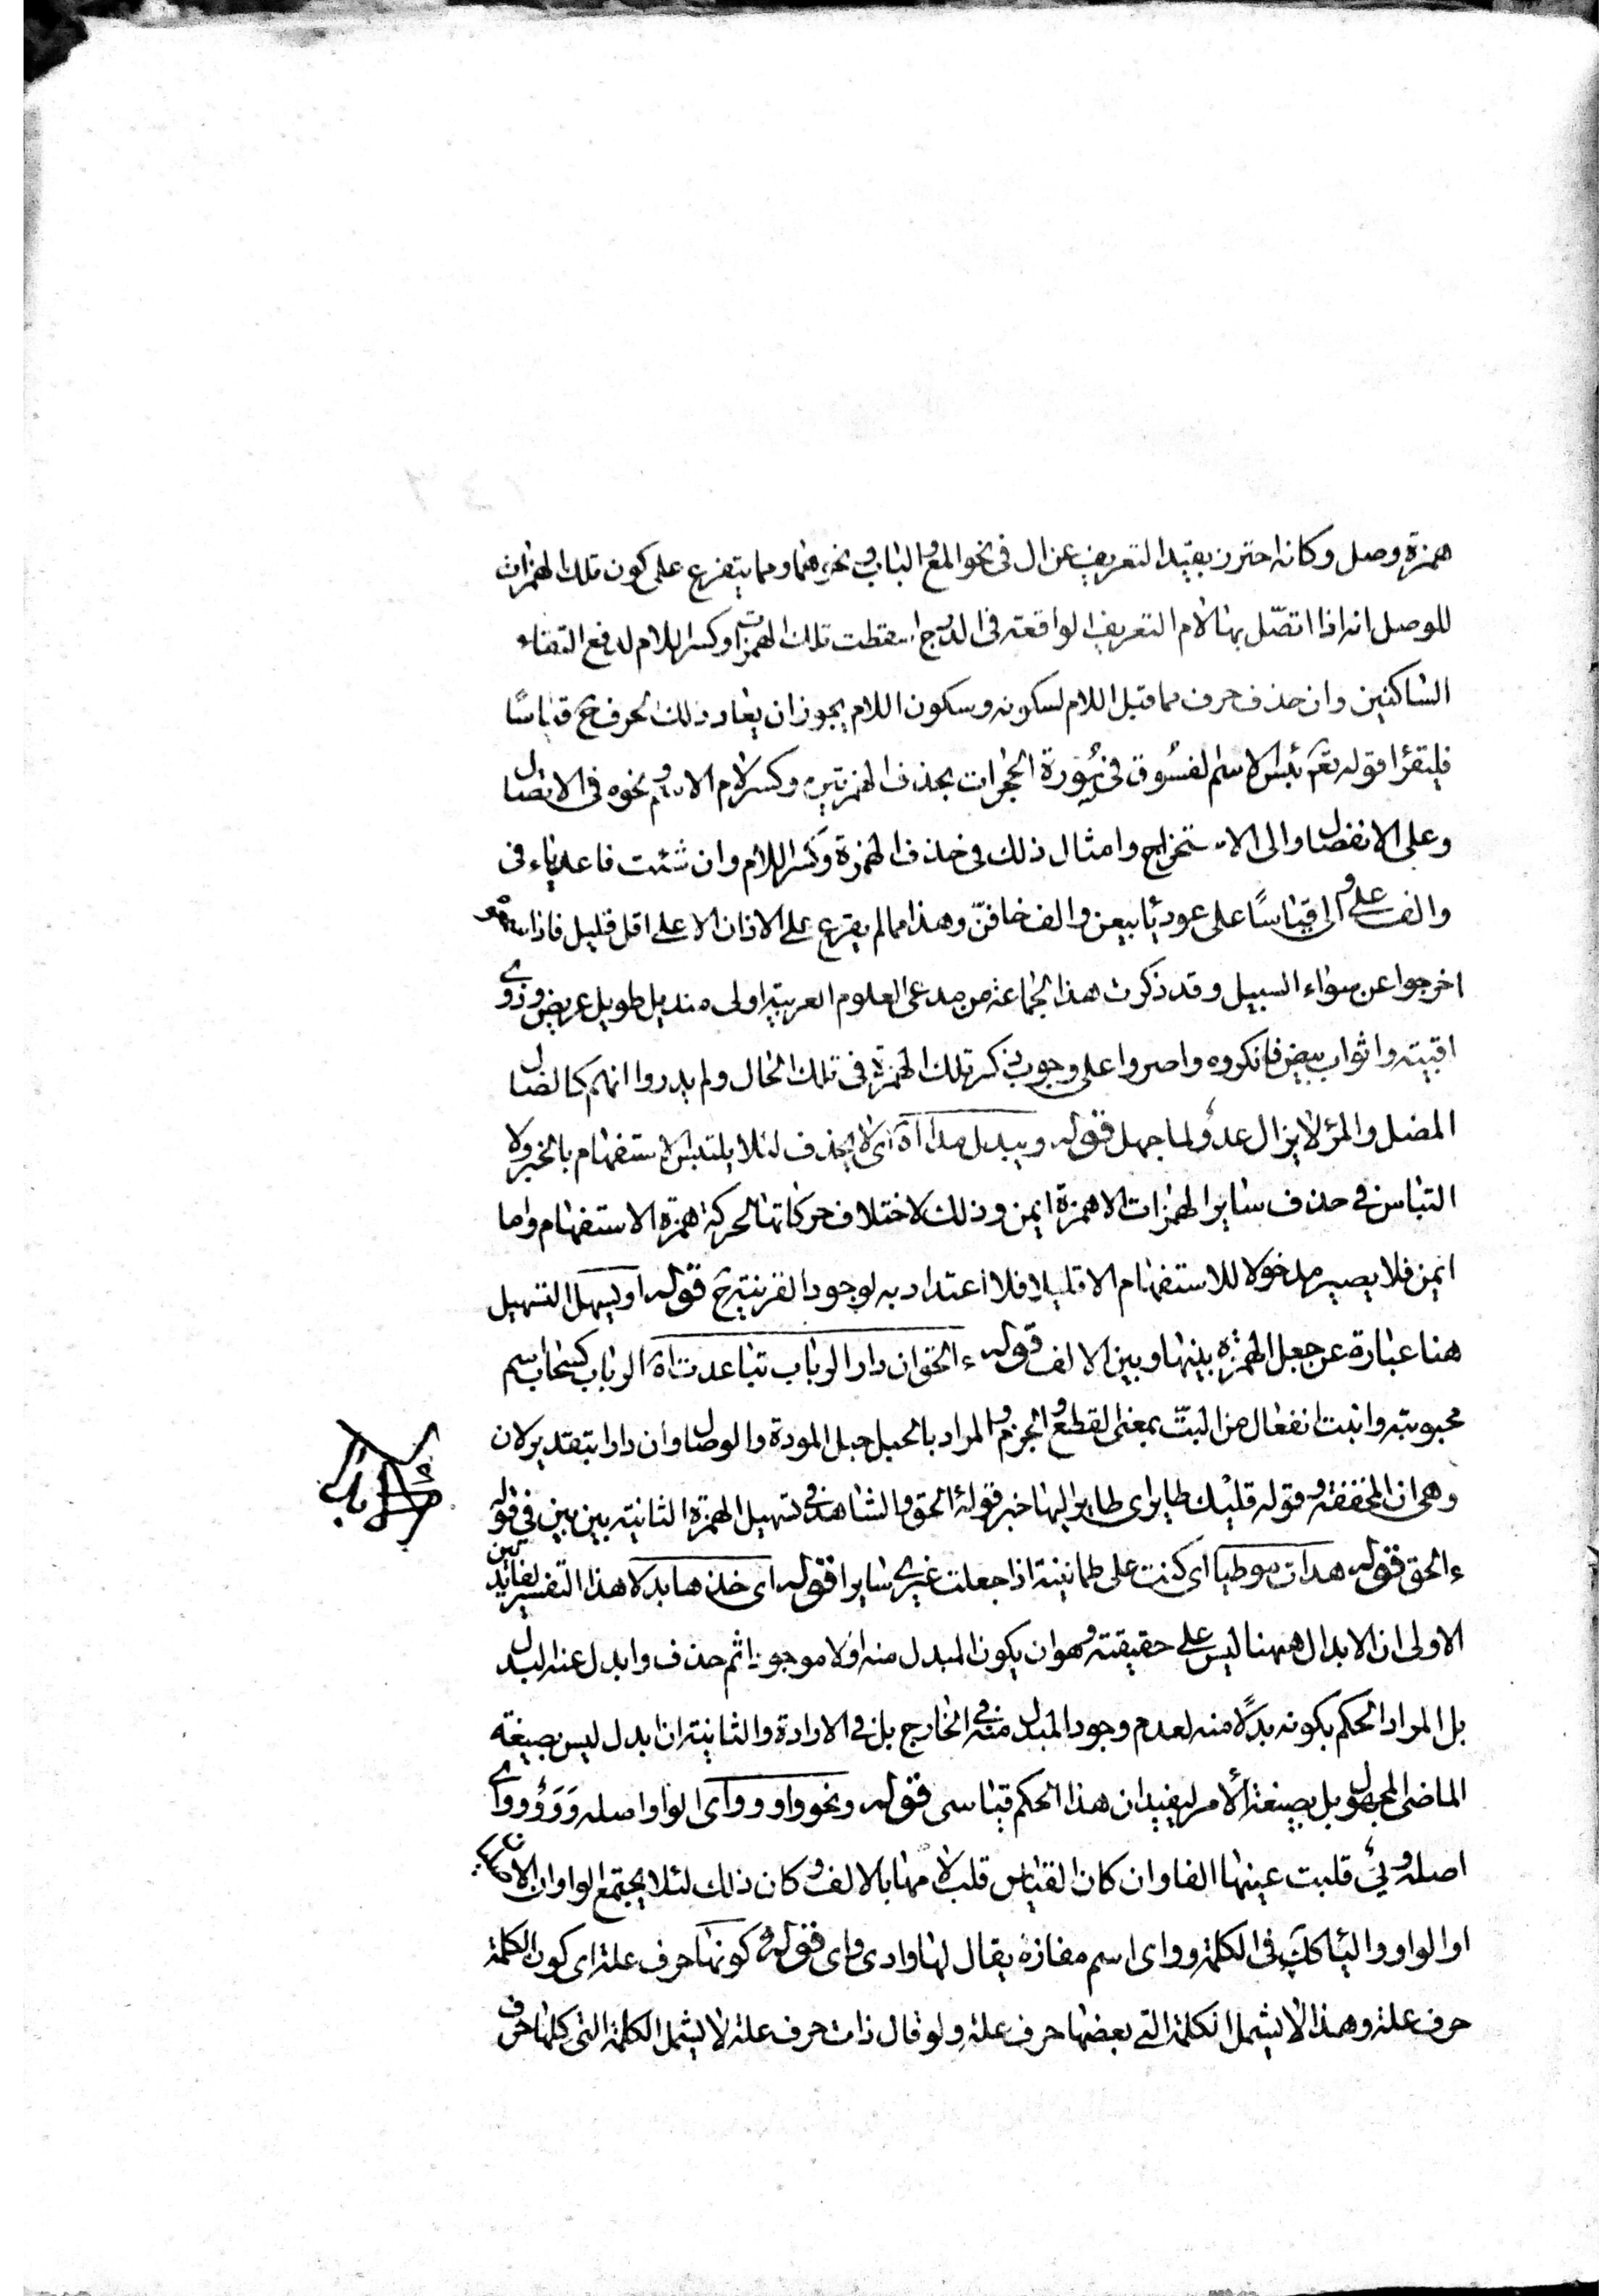 همزة وصل وكانه احترز بقيد التعريف عن ال فى نحو المع والباب ونحوهما ومما يتفرع على كون تلك الهمزات
للوصل انه اذا اتصل بها لام التعريف الواقعة فى الدرج اسقطت تلك الهمزات وكسر اللام لدفع التقاء
الساكنين وان حذف حرف مما قبل اللام لسكونه وسكون اللام يجوز ان يعاد ذلك الحرف ح قياسًا
فليقرأ قوله تعم بئس الاسم لفسوق فى سُورة الحجرات بحذف الهمزتين وكسر لام الاسم ونحوه فى الاتصال
وعلى الانفصال والى الاستخراج وامثال ذلك فى حذف الهمزة وكسر اللام وان شئت فاعد ياء فى
والف على والى قياسًا على عود يا بيعن والف خافنّ وهذا مما لم يقرع على الاذان الا على اقل قليل فاذا سمعوه
اخرجوا عن سواء السبيل وقد ذكرت هذا الجماعة من مدعى العلوم العربية اولى منديل طويل عريض وذوى
اقبية واثواب بيض فانكروه واصروا على وجوب ذكر تلك الهمزة فى تلك الحال ولم يدروا انهم كالضال
المضل والمرء لا يزال عدوًا لما جهل قوله ويبدل مدا اه اى لا يحذف لئلا يلتبس الاستفهام بالخبر ولا
التباس فى حذف ساير الهمزات الا همزة ايمن وذلك لاختلاف حركاتها لحركة همزة الاستفهام واما
ايمن فلا يصير مدخولا للاستفهام الا قليلا فلا اعتداد به لوجود القرينة ح قوله او يسهل التسهيل
هنا عبارة عن جعل الهمزة بينها وبين الالف قوله ءالحق ان دار الرباب تباعدت اه الرباب كسحاب اسم
محبوبته وانبت انفعال من البتّ بمعنى القطع والجزم والمراد بالحبل حبل المودة والوصال وان دارا بتقدير لان
وهى ان المخففة وقوله قلبك طاير اى طاير اليها خبر قوله ءالحق والشاهد فى تسهيل الهمزة الثانية بين بين فى قوله
ءالحق قوله هدات موطيا اى كنت على طمانينة اذا جعلت غيرى سايرا قوله اى خذها بدلا هذا التفسير لفائدتين
الاولى ان الابدال ههنا ليس على حقيقته وهو ان يكون المبدل منه اولا موجودا ثم حذف وابدل عنه البدل
بل المراد الحكم بكونه بدلًا منه لعدم وجود المبدل منه فى الخارج بل فى الارادة والثانية ان ابدل ليس بصيغة
الماضى المجهول بل بصيغة الأمر ليفيد ان هذا الحكم قياسى قوله ونحو واو وواى الواو اصله وَوَوٌ وواى
اصله وىيٌ قلبت عينها الفا وان كان القياس قلب لامها بالالف وكان ذلك لئلا يجتمع الواوان
او الواو والياء كك فى الكلمة وواى اسم مفازة يقال لها وادى واى قوله كونها حرف علة اى كون الكلمة
حرف علة وهذا لا يشمل الكلمة التى بعضها حرف علة ولو قال ذات حرف علة لا يشمل الكلمة التى كلها حرف